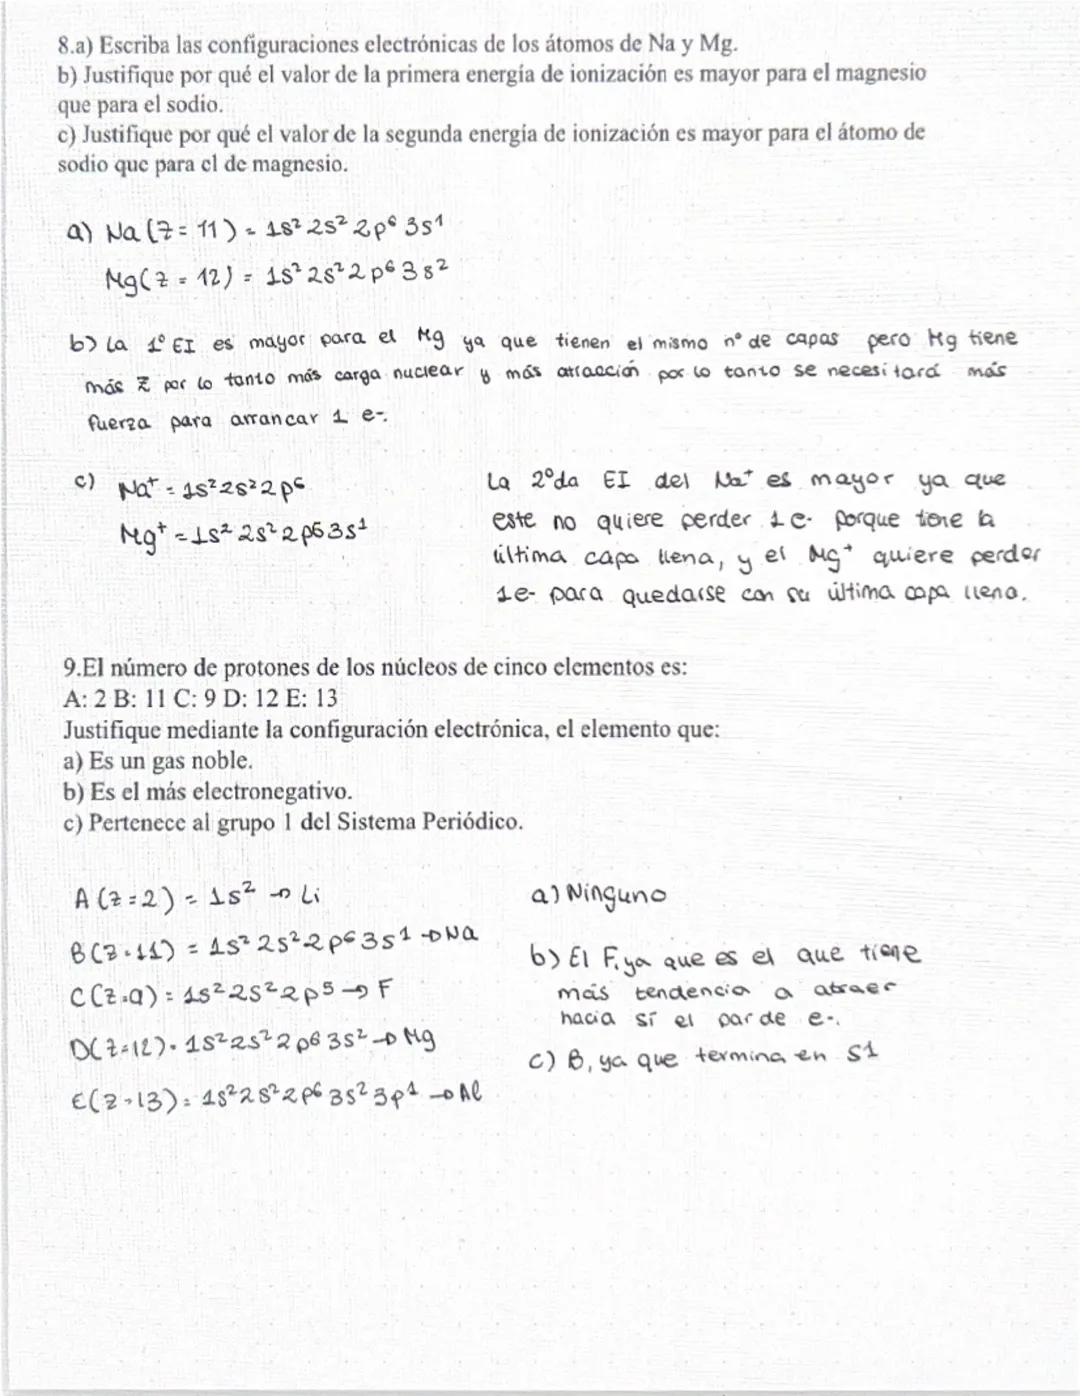 8.a) Escriba las configuraciones electrónicas de los átomos de Na y Mg.
b) Justifique por qué el valor de la primera energía de ionización es mayor para el magnesio
que para el sodio.
c) Justifique por qué el valor de la segunda energía de ionización es mayor para el átomo de
sodio que para el de magnesio.
a) Na (Z = 11) = 1s² 2s² 2p⁶ 3s¹
Mg (Z = 12) = 1s² 2s² 2p⁶ 3s²
b) La 1º EI es mayor para el Mg ya que tienen el mismo nº de capas pero Mg tiene
más Z por lo tanto más carga nuclear y más atracción por lo tanto se necesitará más
fuerza para arrancar 1 e-.
c) Na⁺ = 1s² 2s² 2p⁶
Mg⁺ = 1s² 2s² 2p⁶ 3s¹
La 2ºda EI del Na⁺ es mayor ya que
este no quiere perder 1 e- porque tiene la
última capa llena, y el Mg⁺ quiere perder
1e- para quedarse con su última capa llena.
9.El número de protones de los núcleos de cinco elementos es:
A: 2 B: 11 C: 9 D: 12 E: 13
Justifique mediante la configuración electrónica, el elemento que:
a) Es un gas noble.
b) Es el más electronegativo.
c) Pertenece al grupo 1 del Sistema Periódico.
A (Z = 2) = 1s² → Li
B (Z = 11) = 1s² 2s² 2p⁶ 3s¹ → Na
C (Z = 9) = 1s² 2s² 2p⁵ → F
D (Z = 12) = 1s² 2s² 2p⁶ 3s² → Mg
E (Z = 13) = 1s² 2s² 2p⁶ 3s² 3p¹ → Al
a) Ninguno
b) El F, ya que es el que tiene
más tendencia a atraer
hacia sí el par de e-.
c) B, ya que termina en s1